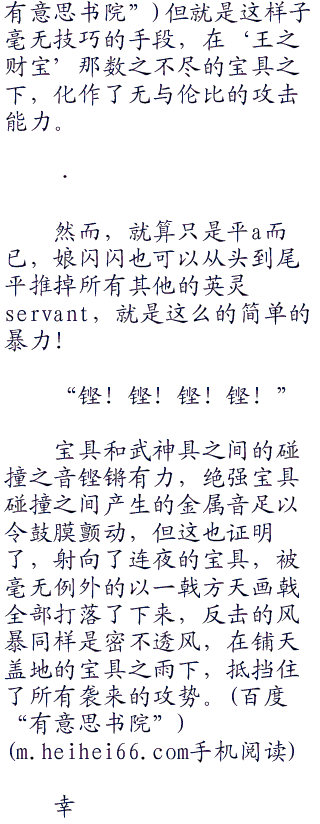 有意思书院”)但就是这样子
毫无技巧的手段，在‘王之
财宝’那数之不尽的宝具之
下，化作了无与伦比的攻击
能力。
.
然而，就算只是平a而
已，娘闪闪也可以从头到尾
平推掉所有其他的英灵
servant，就是这么的简单的
暴力！
“铿！铿！铿！铿！”
宝具和武神具之间的碰
撞之音铿锵有力，绝强宝具
碰撞之间产生的金属音足以
令鼓膜颤动，但这也证明
了，射向了连夜的宝具，被
毫无例外的以一戟方天画戟
全部打落了下来，反击的风
暴同样是密不透风，在铺天
盖地的宝具之雨下，抵挡住
了所有袭来的攻势。(百度
“有意思书院”)
(m.heihei66.com手机阅读)
幸